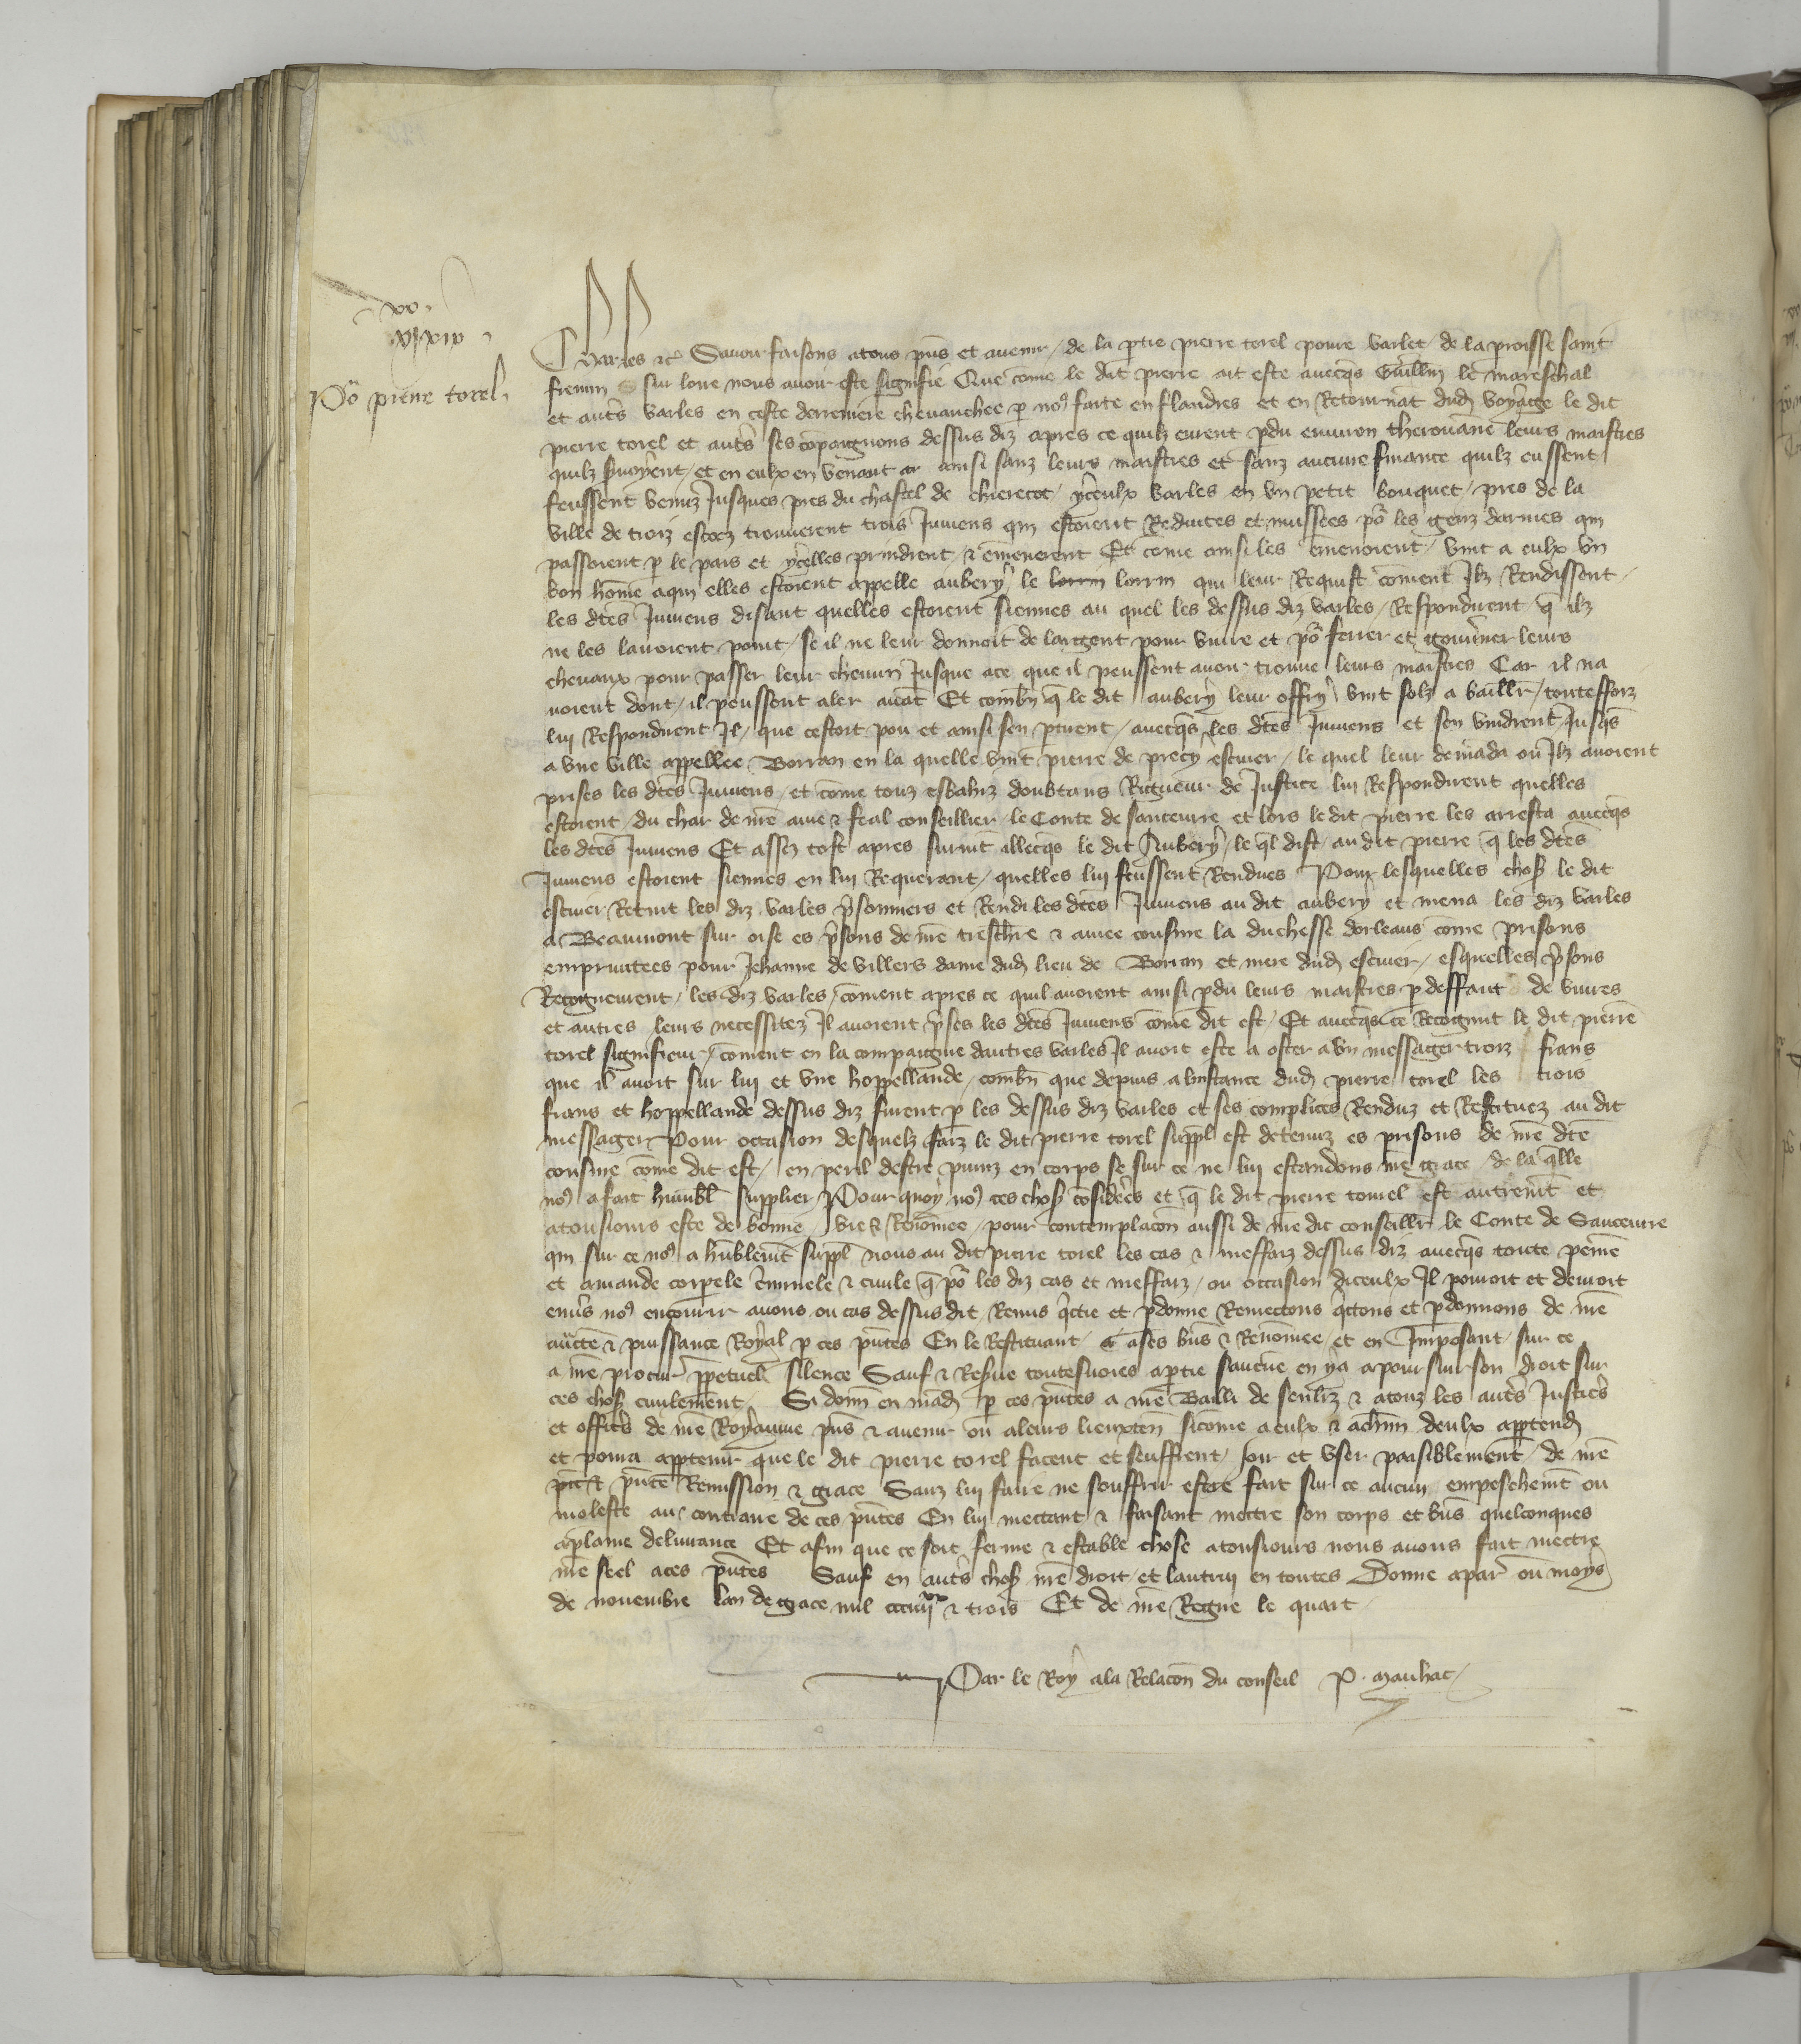 vo.
vixxix
Po pierre torel.
Charles etc Savoir faisons atous pns et avenir / de la ptie pierre torel povre varlet de la proisse saint
fremin sur loire nous avoir este signifie Que come le dit pierre ait este avecqs Guillm le mareschal
et auts varles en ceste derreniere chevauchee p nos faite en flandres et en Retournat dud voyage le dit
pierre torel et auts ses copaignons dessus diz apres ce quilz eurent pdu environ therouane leurs maistres
quilz suoyent / et en eulx en venant ainsi sanz leurs maistres et sanz aucune finance quilz eussent
feussent venuz Jusques pres du chastel de chierecot / yceulx varles en un petit bouquet / pres de la
ville de troiz estocz trouverent trois Jumens qui estoient Reduites et mussees po les genz darmes qui
passoient p le pais et ycelles prindrent / et emenerent Et come ainsi les emenoient / vint a eulx un
bon home aqui elles estoient appelle aubery le lorrin lorrin qui leur Requist coment Ilz Rendissent /
les dtes Jumens disant quelles estoient siennes au quel les dessus diz varles / Respondirent q ilz
ne les lauroient point / se il ne leur donnoit de largent pour vivre et po ferrer et gouvner leurs
chevaux pour passer leur chemin Jusque ace que il peussent avoir trouve leurs maistres Car il na
voient dont / il peussent aler avat Et combn q le dit aubery leur offry vint solz a baillr / touteffoiz
lui Respondirent Il / que cestoit pou et ainsi sen ptirent / avecqs les dtes Jumens et sen vindrent Jusqs
a une ville appellee Borran en la quelle vint pierre de precy escuier / le quel leur demada ou Ilz avoient
prises les dtes Jumens / et come touz esbahiz doubtans Rigueur de Justice lui Respondirent quelles
estoient / du char de nre ame et feal conseillier / le Conte de sancerre et lors le dit pierre les arresta avecqs
les dtes Jumens Et assez tost apres survit illecqs le dit Aubery / le ql dist / au dit pierre q les dtes
Jumens estoient siennes en lui Requerant / quelles lui feussent Rendues Pour lesquelles chos le dit
escuier Retint les diz varles psonniers et Rendi les dtes Jumens au dit aubery et mena les diz varles
a Beaumont sur oise es psons de nre treschre et amee cousine la duchesse dorleans come prisons
empruntees pour Jehanne de villers dame dud lieu de Borran et mere dud escuier / esquelles psons
Recognurent / les diz varles / coment apres ce quil avoient ainsi pdu leurs maistres p deffaut de vivres
et autres leurs necessitez Il avoient pses les dtes Jumens come dit est / Et avecqs ce Recognut le dit pierre
torel signifieur / coment en la compaignie dautres varles Il avoit este a oster a un messager troiz frans
que il avoit sur lui et une hoppellande / combn que depuis a linstance dud pierre torel les trois
frans et hoppellande dessus diz furent p les dessus diz varles et ses complices Renduz et Restituez au dit
messager Pour occasion desquelz faiz le dit pierre torel suppl est detenuz es prisons de nre dte
cousine come dit est / en peril destre puniz en corps se sur ce ne lui estandons nre grace / de la qlle
nos a fait humbl supplier / Pour quoy nos ces chos cosideres et q le dit pierre tourel est autremt et
atousiours este de bonne / vie et Renomee / pour contemplacon aussi de nre dit conseillr le Conte de Sancerre
qui sur ce nos a hublemt suppl nous au dit pierre torel les cas et meffaiz dessus diz avecqs toute peine
et amande corpele crimnele et civile q po les diz cas et meffaiz / ou occasion diceulx Il pouoit et devoit
envs nos encourir avons ou cas dessus dit Remis qctie et pdonne Remectons qctons et pdonnons de nre
aucte et puissance Royal p ces pntes En le Restituant / a ses bns et Renomee / et en Imposant / sur ce
a nre procur ppetuel silence Sauf et Resve toutesvoies aptie saucune en ya apoursuir son droit sur
ces chos civilement Si donn en mad p ces pntes a nre Bailli de senliz et atouz les auts Justics
et offics de nre Royaume pns et avenir ou aleurs lieuxten sicome a eulx et achun deulx apptend
et pourra apptenir que le dit pierre torel facent et seuffrent / Joir et user paisiblement / de nre
pte et pnte Remission et grace Sanz lui faire ne souffrir estre fait sur ce aucun empeschemt ou
moleste au contraire de ces pntes En lui mectant et faisant mectre son corps et bns quelconques
aplaine delivrance Et afin que ce soit ferme et estable chose atousiours nous avons fait mectre
nre seel aces pntes Sauf en auts chos nre droit / et lautrui en toutes Donne apar ou moys
de novembre lan de grace mil ccciiii xx et trois Et de nre Regne le quart
Par le Roy ala Relacon du conseil P. mauhac